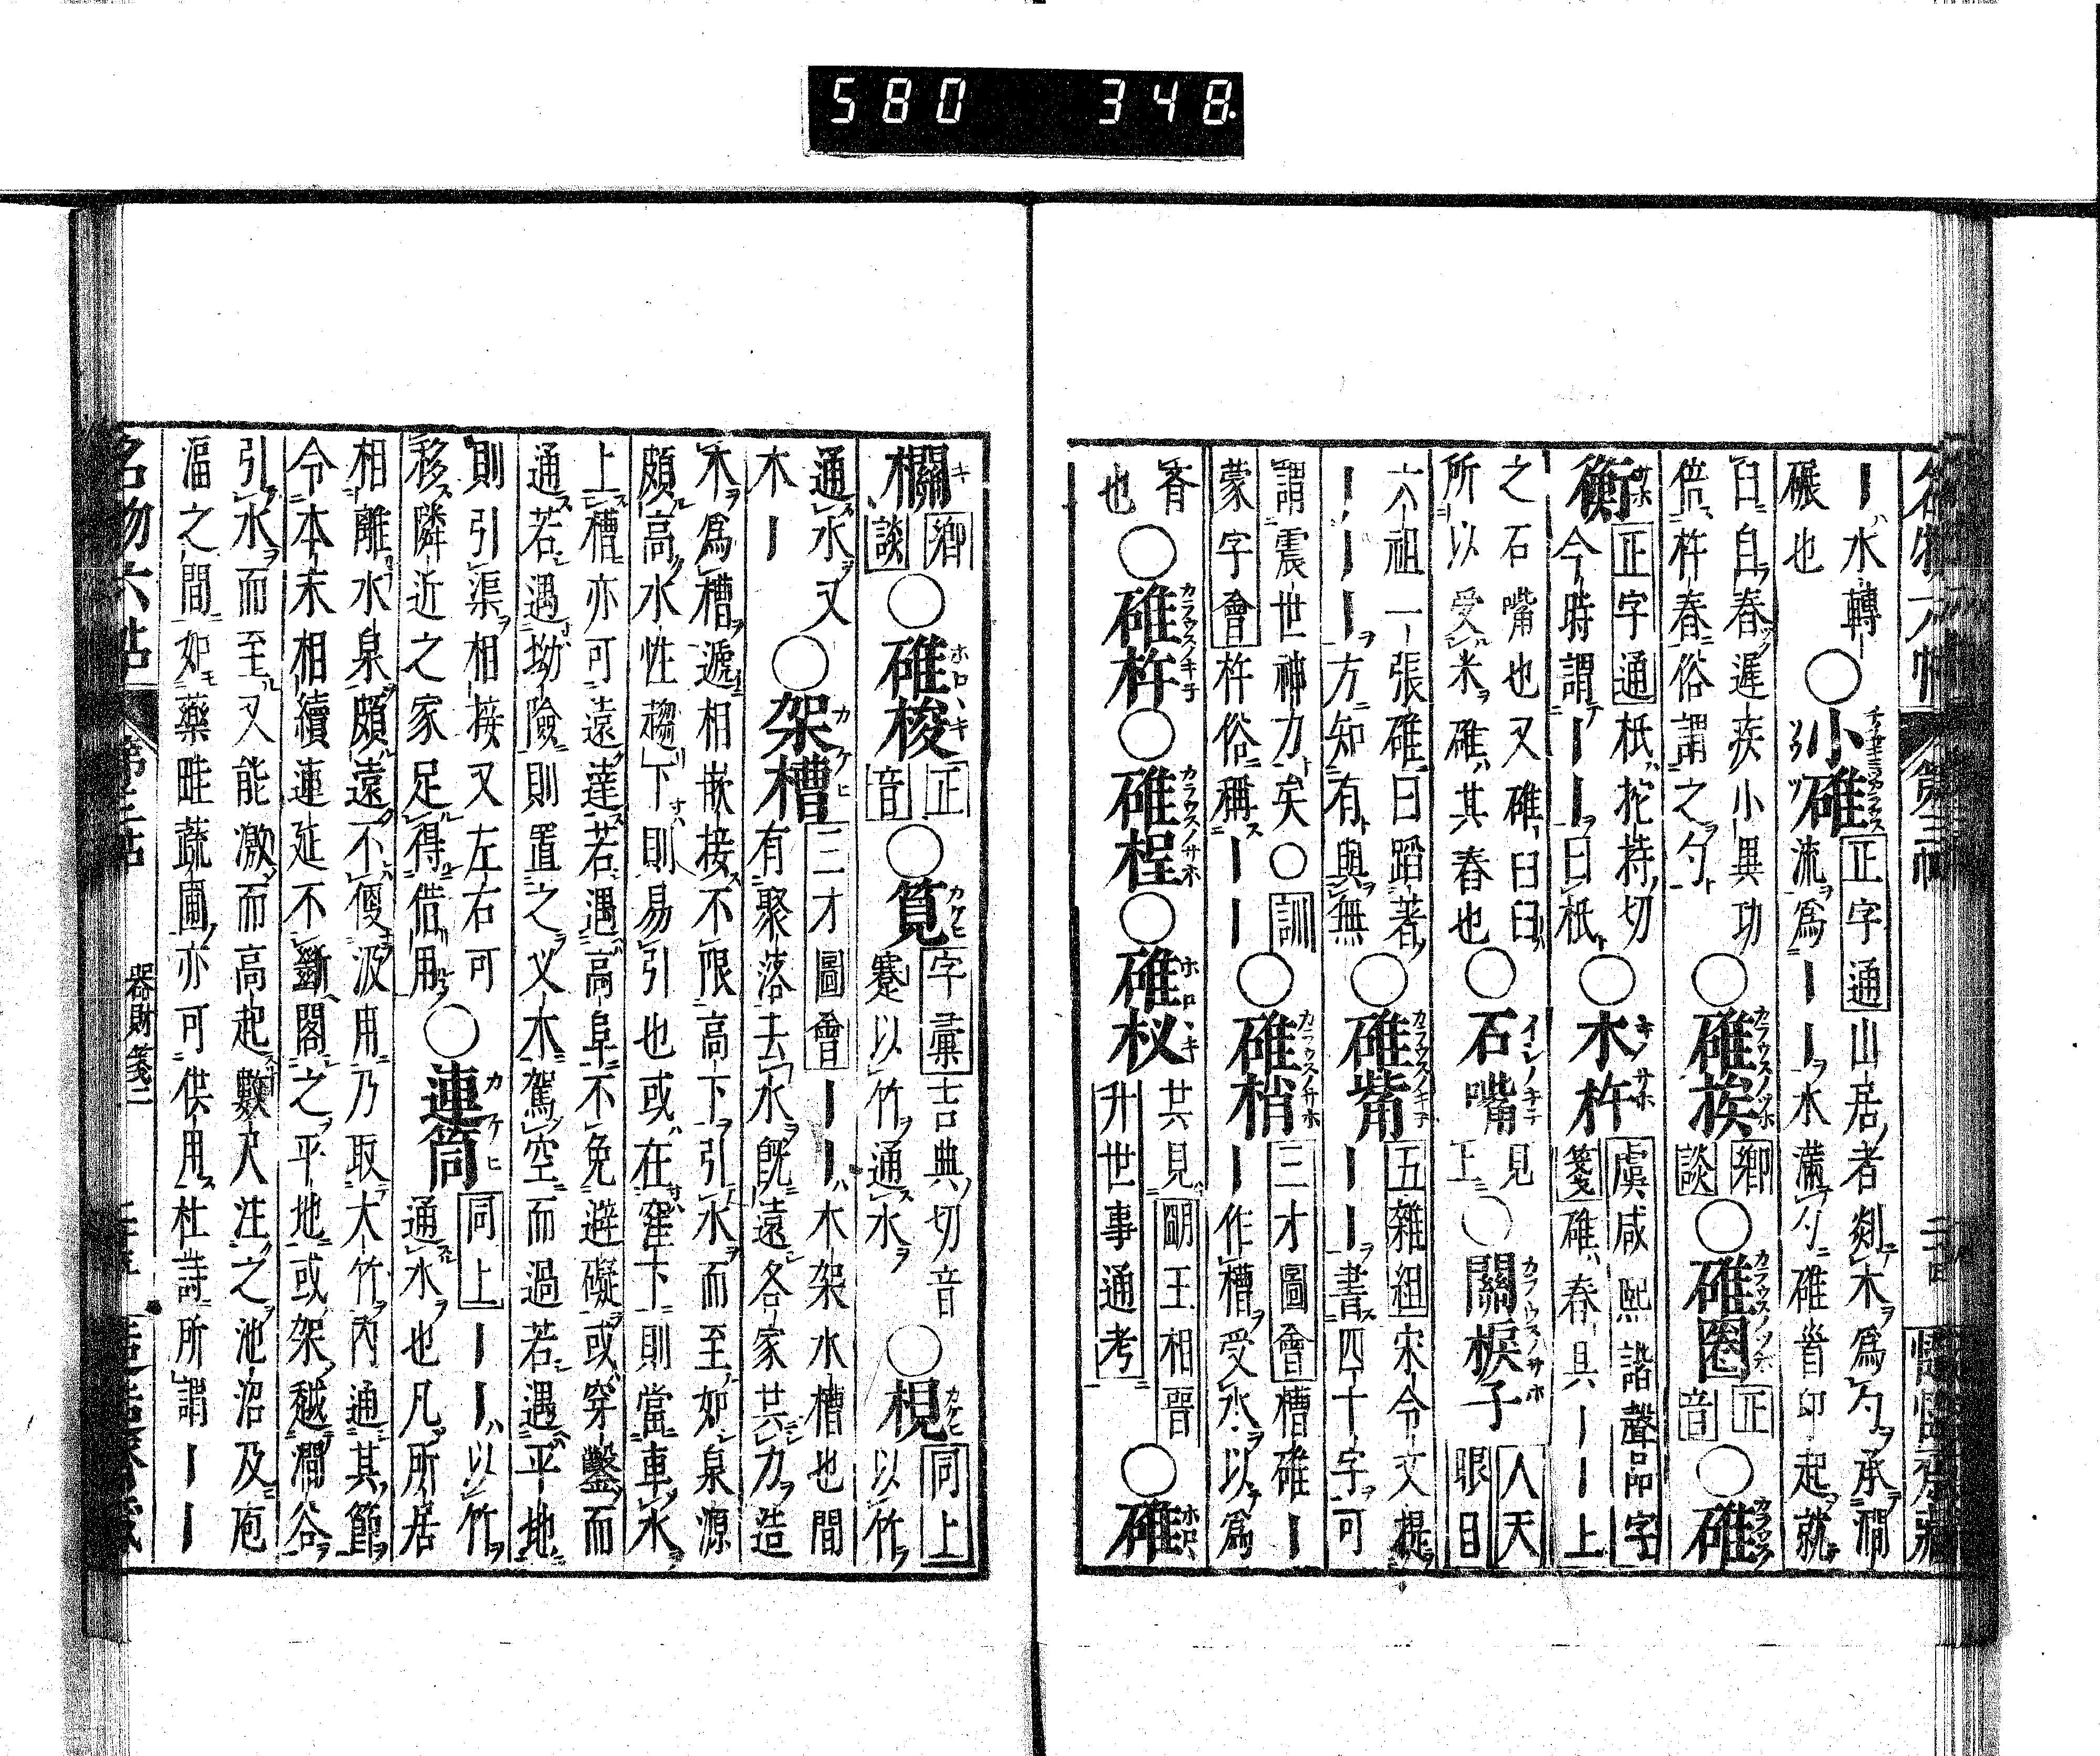 580 348
名物六帖 第三帖
｜水轉｜
碾也
○小碓
正字通山居者剡木為勺承澗
引流為｜｜水滿勺碓首卬起就
臼自舂遲疾小異功
倍杵舂俗謂之勺
○碓挨 鄉談 ○碓圈 正音 ○碓
衡
正字通柢拕持切
今時謂｜｜曰柢
○木杵
虞咸熙諧聲品字
箋碓舂具｜｜上
之石嘴也又碓臼曰
所以受米碓其舂也
○石嘴 見上 ○關棙子 人天眼目
六祖一張碓曰蹈著
｜｜｜方知有與無
○碓觜
五雜組宋令文提
｜｜書四十字可
謂震世神力矣○訓
蒙字會杵俗稱｜｜
○碓梢
三才圖會槽碓｜
｜作槽受水以為
舂
也
○碓杵○碓桯○碓杈
共見明王相晋
升世事通考
○碓
欄 鄉談 ○碓梭 正音 ○筧
字彙吉典切音
蹇以竹通水
○梘
同上
以竹
通水又
木｜
○架槽
三才圖會｜｜木架水槽也間
有聚落去水既遠各家共力造
木為槽遞相嵌接不限高下引水而至如泉源
頗高水性趨下則易引也或在窪下則當車水
上槽亦可遠達若遇高阜不免避礙或穿鑿而
通若遇坳險則置之叉木駕空而過若遇平地
則引渠相接又左右可
移隣近之家足得借用
○連筒
同上｜｜以竹
通水也凡所居
相離水泉頗遠不便汲用乃取大竹内通其節
令本末相續連延不斷閣之平地或架越澗谷
引水而至又能激而高起數尺注之池沼及庖
湢之間如藥畦蔬圃亦可供用杜詩所謂｜｜
名物六帖 第三帖 器財箋二